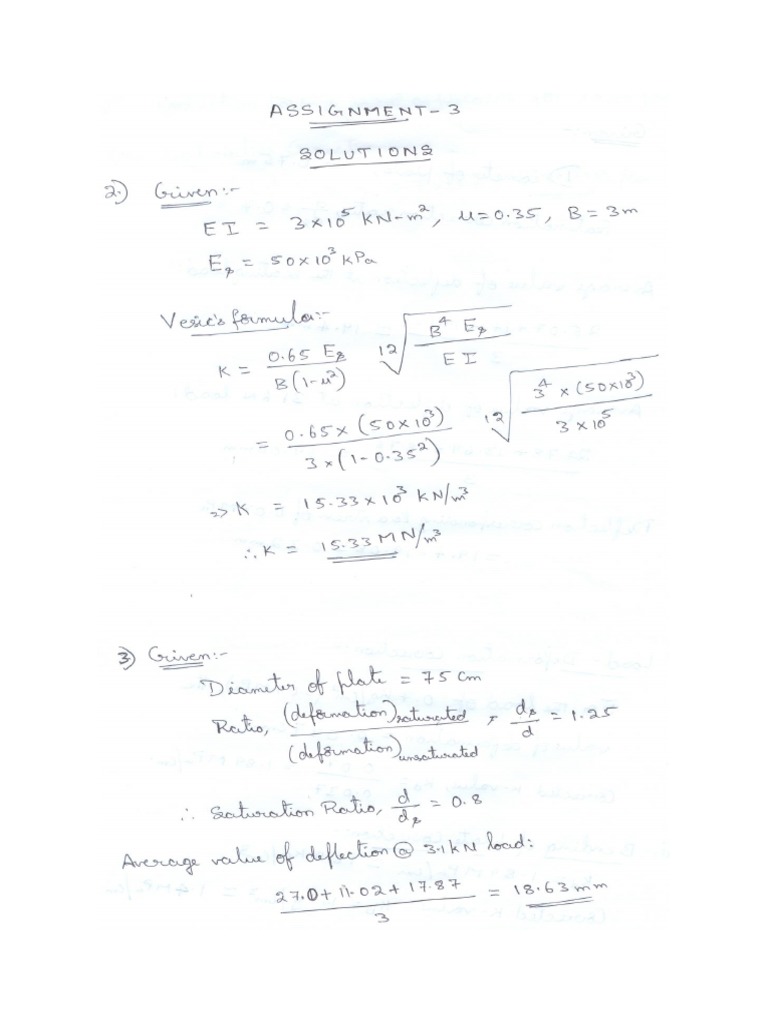 ASSIGNMENT-3
SOLUTIONS
2) Given:-
EI = 3×10⁵ KN-m², μ=0.35, B=3m
Es = 50×10³ kPa
Vesic's formula:-
K = 0.65 Es / B(1-μ²) ¹²√(B⁴ Es / EI)
= 0.65×(50×10³) / 3×(1-0.35²) ¹²√(3⁴×(50×10³) / 3×10⁵)
⇒ K = 15.33×10³ KN/m³
∴ K = 15.33 MN/m³
3) Given:-
Diameter of plate = 75 cm
Ratio, (deformation)saturated / (deformation)unsaturated, ds/d = 1.25
∴ Saturation Ratio, d/ds = 0.8
Average value of deflection @ 3.1kN load:
27.0+11.02+17.87 / 3 = 18.63mm